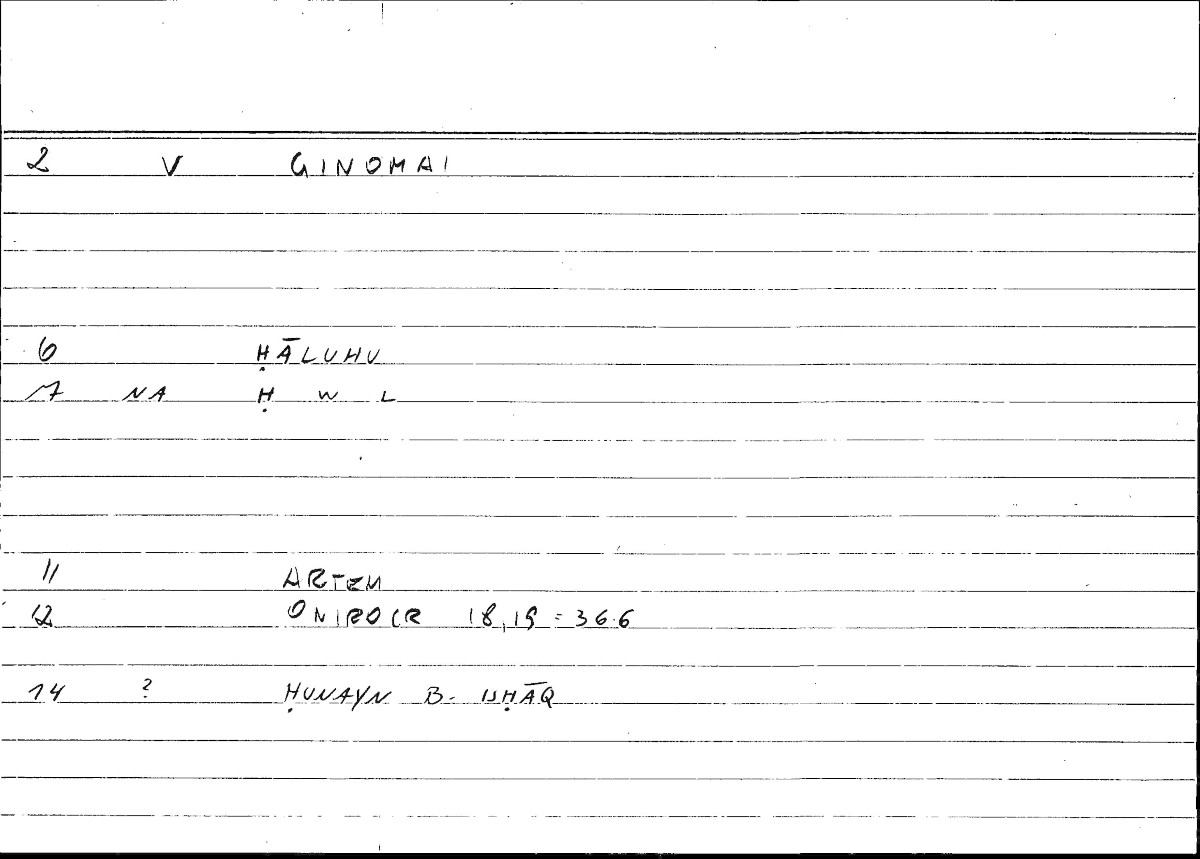 2 V GINOMAI
6 ḤĀLUHU
7 NA Ḥ W L
11 ARTEM
12 ONIROCR 18,19 = 36.6
14 ? ḤUNAYN B. ISḤĀQ